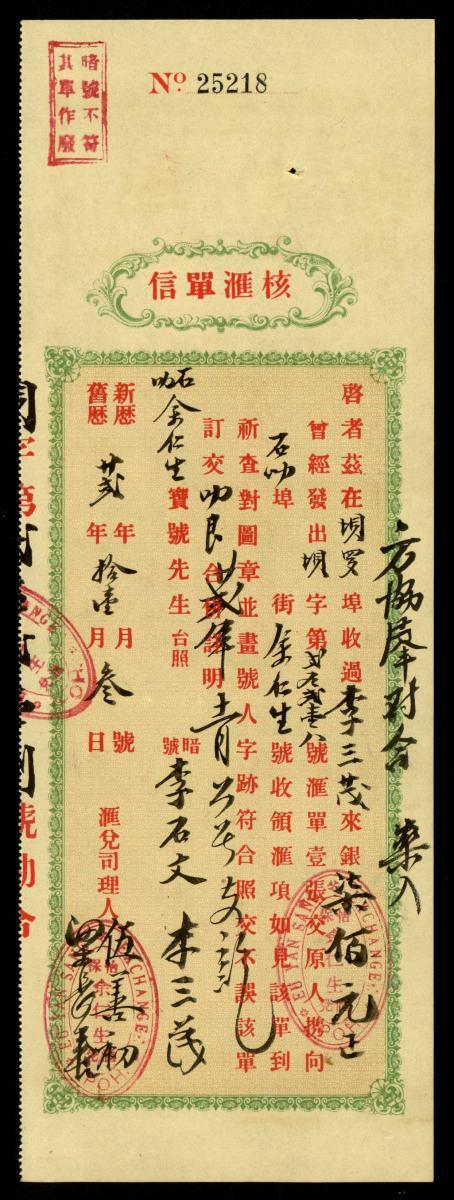 暗號不符
其單作廢
Nº 25218
核滙單信
啓者茲在垻罗埠收過李三茂來銀柒佰元正
曾經發出垻字第弍五弍壹八號滙單壹張交原人携向
石叻埠 街余仁生號收領滙項如見該單到
祈查對圖章並畫號人字跡符合照交不誤該單
訂交叻艮 合併說明
石叻余仁生寶號先生台照
暗號 李石文 李三茂
新歷 年 月 號
舊歷 弍年拾壹月叁日
滙兌司理人 伍善初
字第
號勘合
EU YAN SANG EXCHANGE
余仁生
IPOH